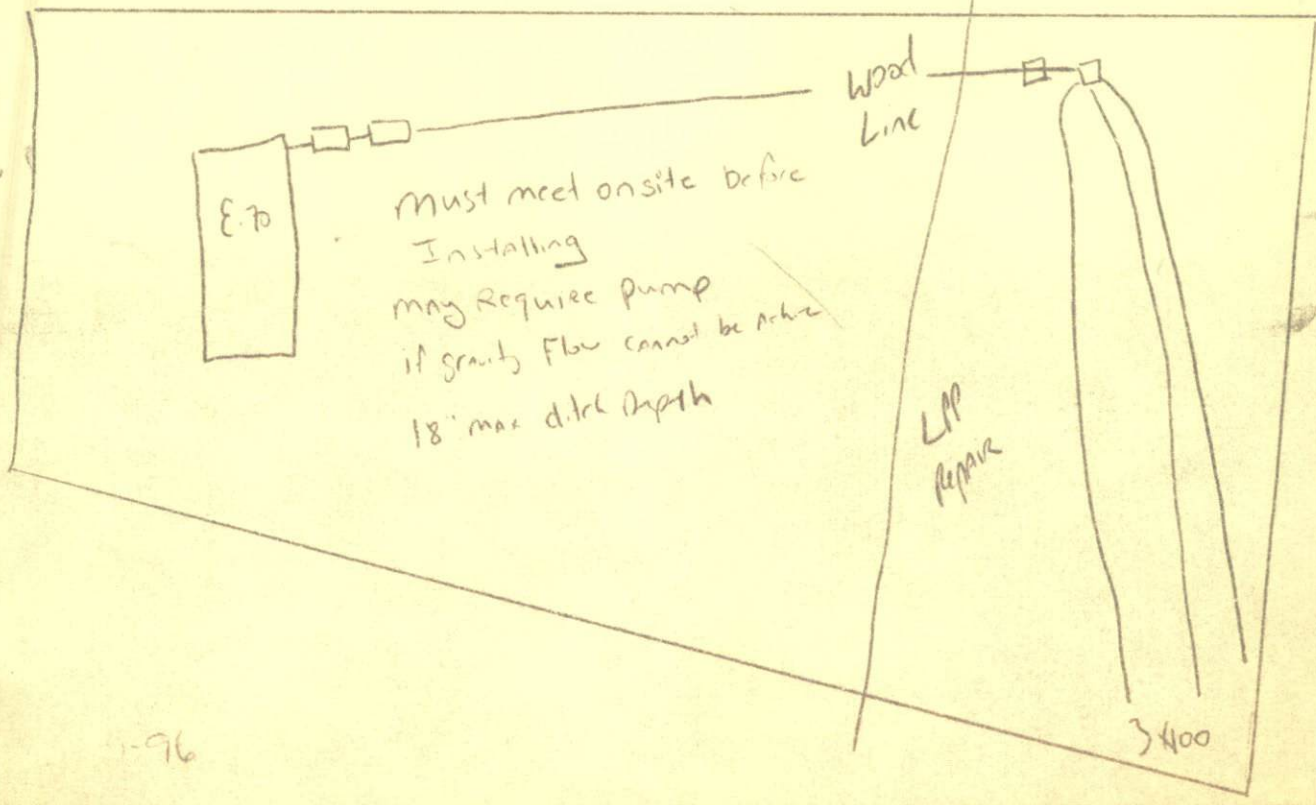 Wood
Line
E.70
Must meet onsite before
Installing
may Require pump
if gravity Flow cannot be
18" max ditch Depth
LPP
Repair
3x100
-96